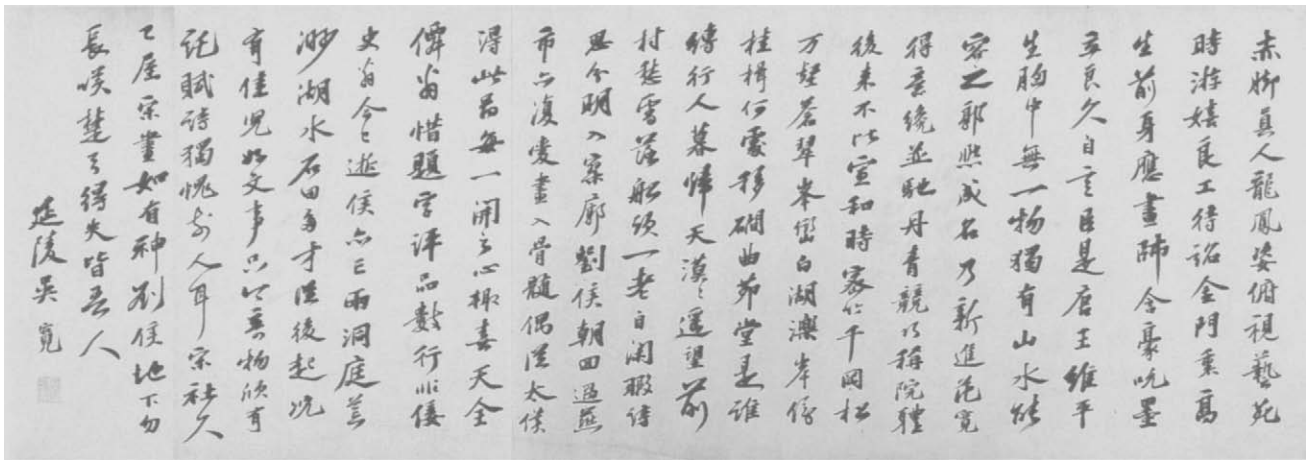 赤脚真人龍鳳姿俯視藝苑
時游嬉良工待詔金門裏高
生前身應畫師含豪吮墨
立良久自言臣是唐王維平
生胸中無一物獨有山水能
容之郭熙成名乃新進范寬
得意纔並馳丹青競以稱院體
後來不比宣和時家仁千岡松
万壑蒼翠峯巒白湖濼岸係
桂楫何處移磵曲茆堂是誰
縛行人暮歸天漠々遥望前
村愁雪落船頭一老自閑暇詩
思分明入寥廓劉侯朝回過燕
市亦復愛畫入骨髓偶從太僕
得此每一開之心輙喜天全
僻翁惜題字評品數行非
史翁今已逝侯亦亡雨洞庭
渺湖水石田多才從後起况
有佳児好文事只今吾物欣有
託賦詩獨愧前人耳宋社久
已屋宋畫如有神劉侯地下勿
長嘆楚弓得失皆吾人
延陵吳寬